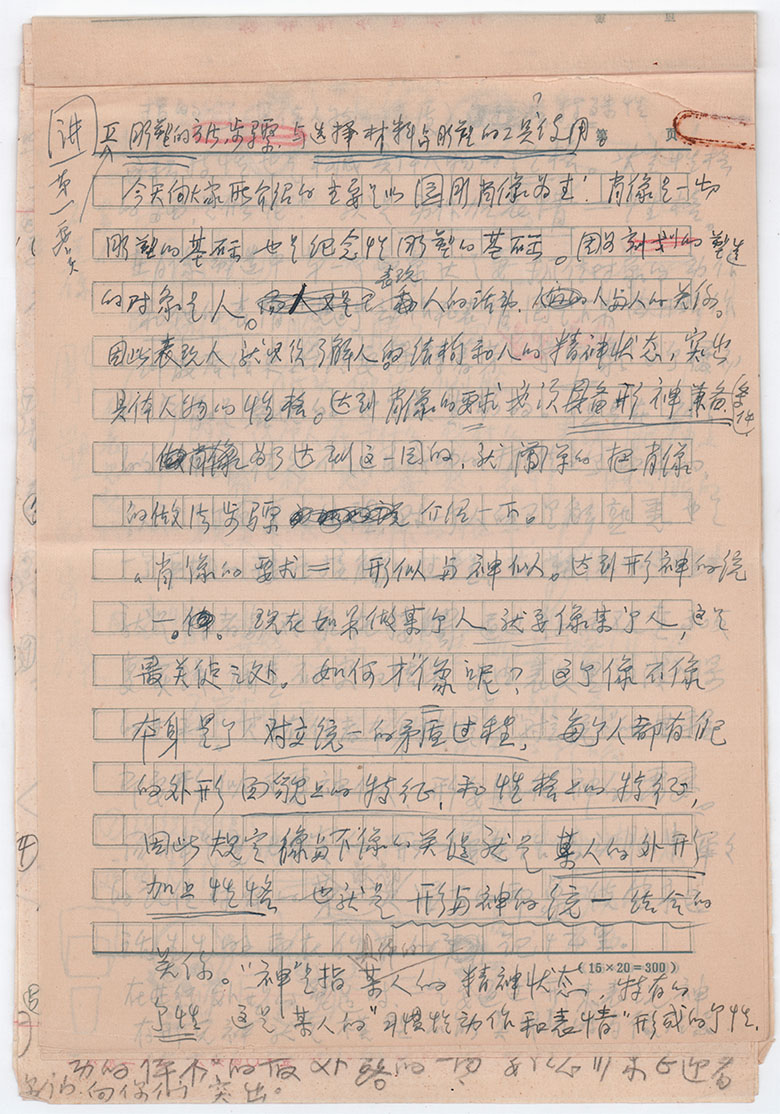 讲
第一要点
?
II 雕塑的方法步骤与选择材料与雕塑的工具使用 第 页
今天向大家所介绍的主要是以圆雕肖像为主。肖像是一切
雕塑的基础 也是纪念性雕塑的基础。因为 塑造
表现
的对象是人。 人的活动、人与人的关系。
因此表现人就必须了解人的结构和人的精神状态，突出
具体人物的性格。达到肖像的要求必须具备形神兼备条件
为了达到这一目的，就简单的把肖像
的做法步骤 介绍一下。
肖像的要求＝ 形似与神似。达到形神的统
一。 现在如果做某个人就要像某个人，这是
最关键之处。如何才像呢？ 这个像不像
本身是个对立统一的矛盾过程，每个人都有他
的外形面貌上的特征，和性格上的特征，
因此规定像与不像的关键就是某人的外形
加上性格 也就是形与神的统一结合的
关系。“神”是指某人的精神状态，特有的
(15×20=300)
个性 这是某人的“习惯性动作和表情”形成的个性.
突出。